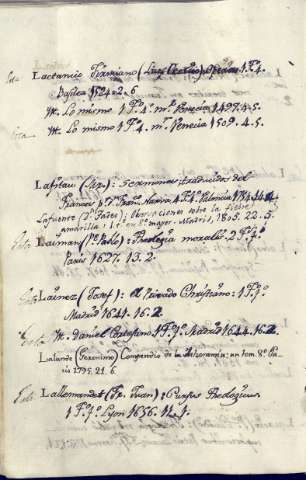 Lactancio Firmiano (Luis Cecilio) Opera 1 tº 4.
Basilea 1524. 2. 6
Yt. Lo mismo 1 Tº 4º mº Venecia 1497. 4. 5.
Yt. Lo mismo 1 Tº 4. mº Venecia 1509. 4. 5.
Lafitau (Sr.): Sermones traducidos del
Frances pr
Palencia
Lafuente (Dr Tadeo) Observaciones sobre la fiebre
amarilla: 1 tº en 4º mayor. Madrid, 1805. 22. 5.
Laiman (P. Pablo): Theologia moralis 2 Tº fº
Paris 1627. 13. 2.
Lainez (Josef): el Privado Christiano: 1 Tº fº
Madrid 1641. 16. 2.
Yt. Daniel Cortesano 1 Tº fº Madrid 1644. 16. 2.
Lalande (Geronimo) Compendio de la Astronomia: un tom. 8º Pa-
ris 1795. 21. 6.
Lallemandet (Fr. Juan): Cursus Theologicus
1 Tº fº Lyon 1656. 11. 1.